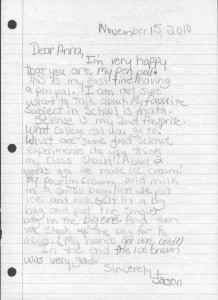 November 15, 2010
Dear Anna,
I'm very happy
that you are my pen pal.
This is my first time having
a pen pal. I am not sure
what to talk about. My favorite
subject in School is Math.
Science is my 2nd favorite.
What College did you go to?
What are some good Science
experiments do you think
my class should? About 2
weeks ago we made ice cream!
By pouring cream and milk
in a small bag. Next we put
ice and rock salt in a big
bag and put the small
bag in the big one. And then
we shook up the bag for 10
mins. (My hands got very cold!)
In the end the ice cream
was very good.
Sincerely,
Jason